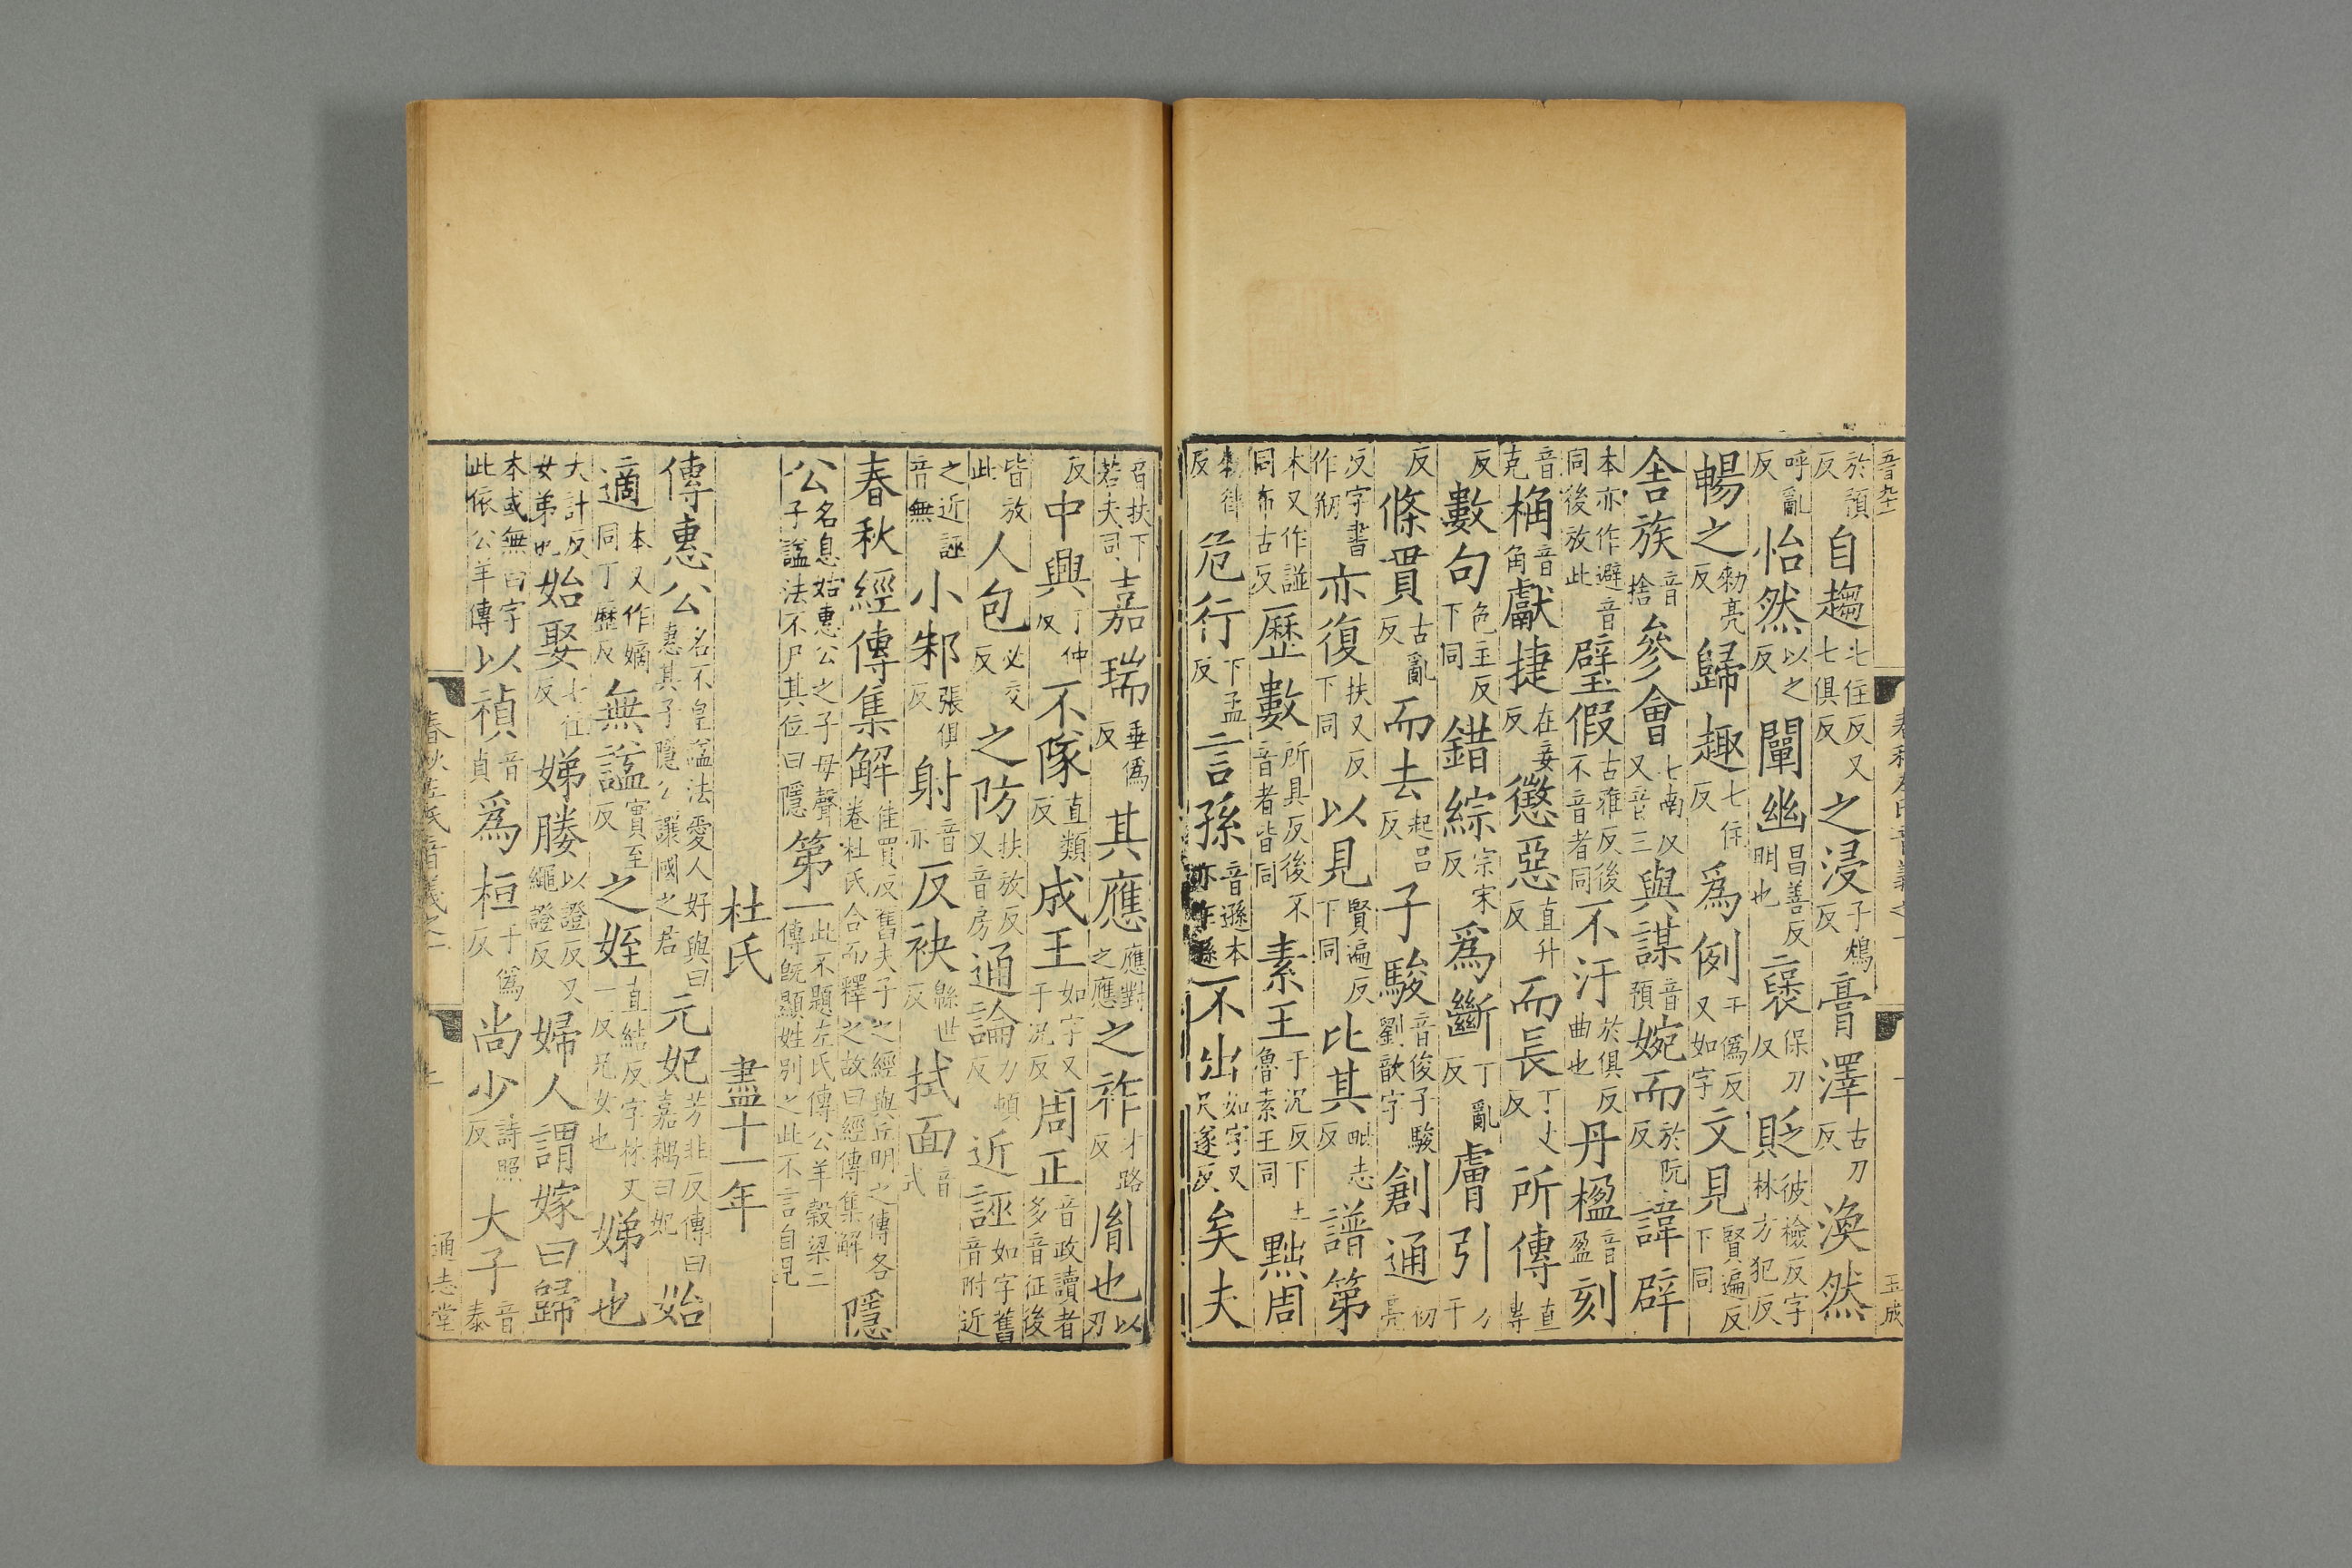 音九十一
於預反自趨七住反又七俱反之浸子鴆反膏澤古刀反渙然
呼亂反怡然以之反闡幽昌善反明也襃保刀反貶彼檢反字林方犯反
暢之勑亮反歸趣七住反爲例于僞反又如字文見賢遍反下同
舍族音捨參會七南反又音三與謀音預婉而於阮反諱辟
本亦作避音同後放此璧假古雅反後不音者同不汙於俱反曲也丹楹音盈刻
音克桷音角獻捷在妾反懲惡直升反而長丁丈反所傳直專
反數句色主反下同錯綜宗宋反爲斷丁亂反膚引
反條貫古亂反而去起呂反子駿音俊子駿劉歆字創通初亮
反字書作剏亦復扶又反下同以見賢遍反下同比其毗志反譜第
本又作諩同布古反歷數所具反後不音者皆同素王于況反下魯素王同黜周
勑律反危行下孟反言孫音遜本亦作遜不出如字又尺遂反矣夫
音扶下若夫同嘉瑞垂爲反其應應對之應之祚才路反胤也以刃
反中興丁仲反不隊直類反成王如字又于況反周正音政讀者多音征後
皆放此人包必交反之防扶放反又音房通論力頓反近誣如字舊音附近
之近誣音無小邾張俱反射音亦反袂緜世反拭面音式
春秋經傳集解佳買反舊夫子之經與丘明之傳各卷杜氏合而釋之故曰經傳集解隱
公名息姑惠公之子母聲子謚法不尸其位曰隱第一此不題左氏傳公羊穀梁二傳旣顯姓別之此不言自見
杜氏 盡十一年
傳惠公名不皇謚法愛人好與曰惠其子隱公讓國之君元妃芳非反傳曰嘉耦曰妃始
適本又作嫡同丁歷反無謚實至反之姪直結反字林丈一反兄女也娣也
大計反女弟也始娶七住反娣媵以證反又繩證反婦人謂嫁曰歸
本或無曰字此依公羊傳以禎音貞爲桓于僞反尚少詩照反大子音泰
春秋左氏音義之一
通志堂